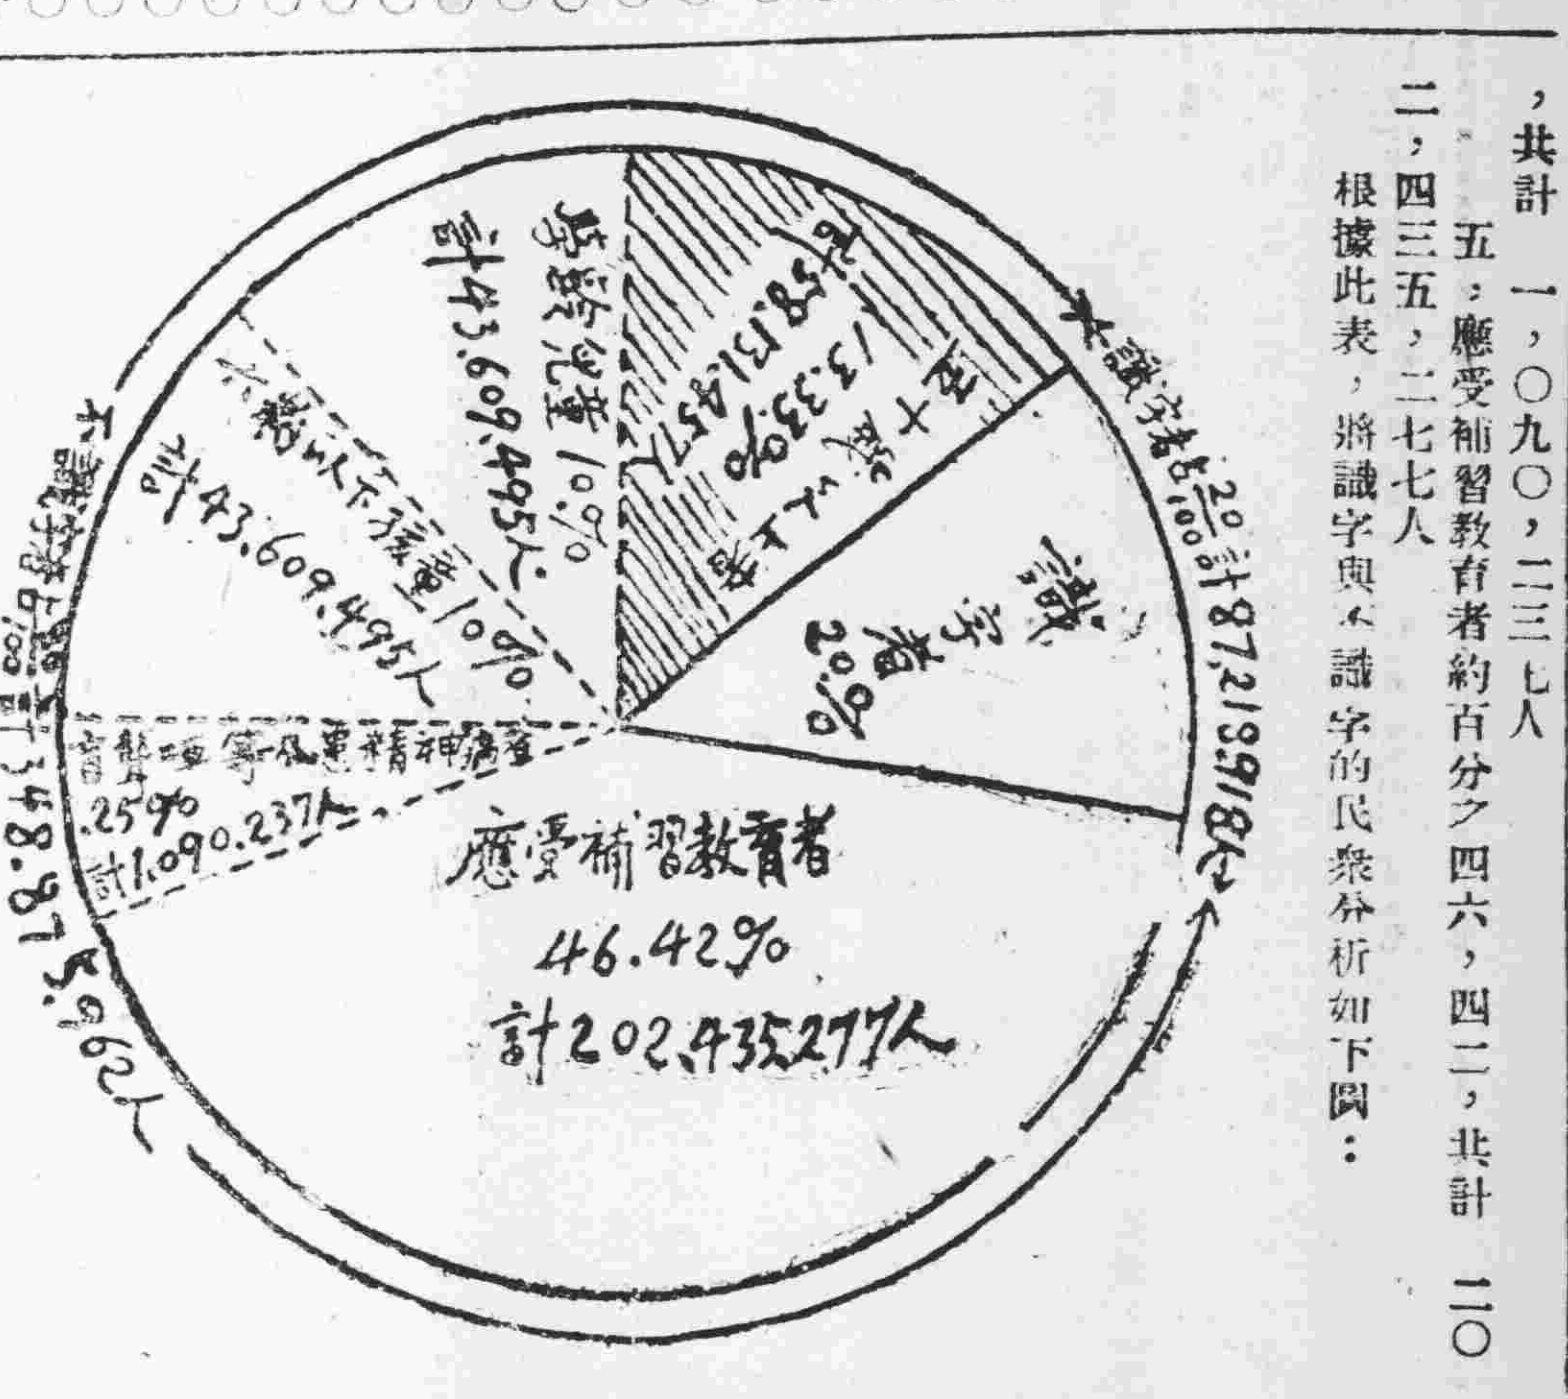 ，共計　一，〇九〇，二三七人
五，應受補習教育者約百分之四六，四二，共計　二〇
二，四三五，二七七人
根據此表，將識字與不識字的民衆分析如下圖：
識字者占20/100計87,218,918人
識字者
20%
五十歲以上者
13.33%
計58.131.457人
學齡兒童10%
計43.609.495人
六齡以下孩童10%
計43.609.495人
盲聾啞等及患精神病者
.25%
計1.090.237人
應受補習教育者
46.42%
計202,435,277人
不識字者占80/100計348.875.962人